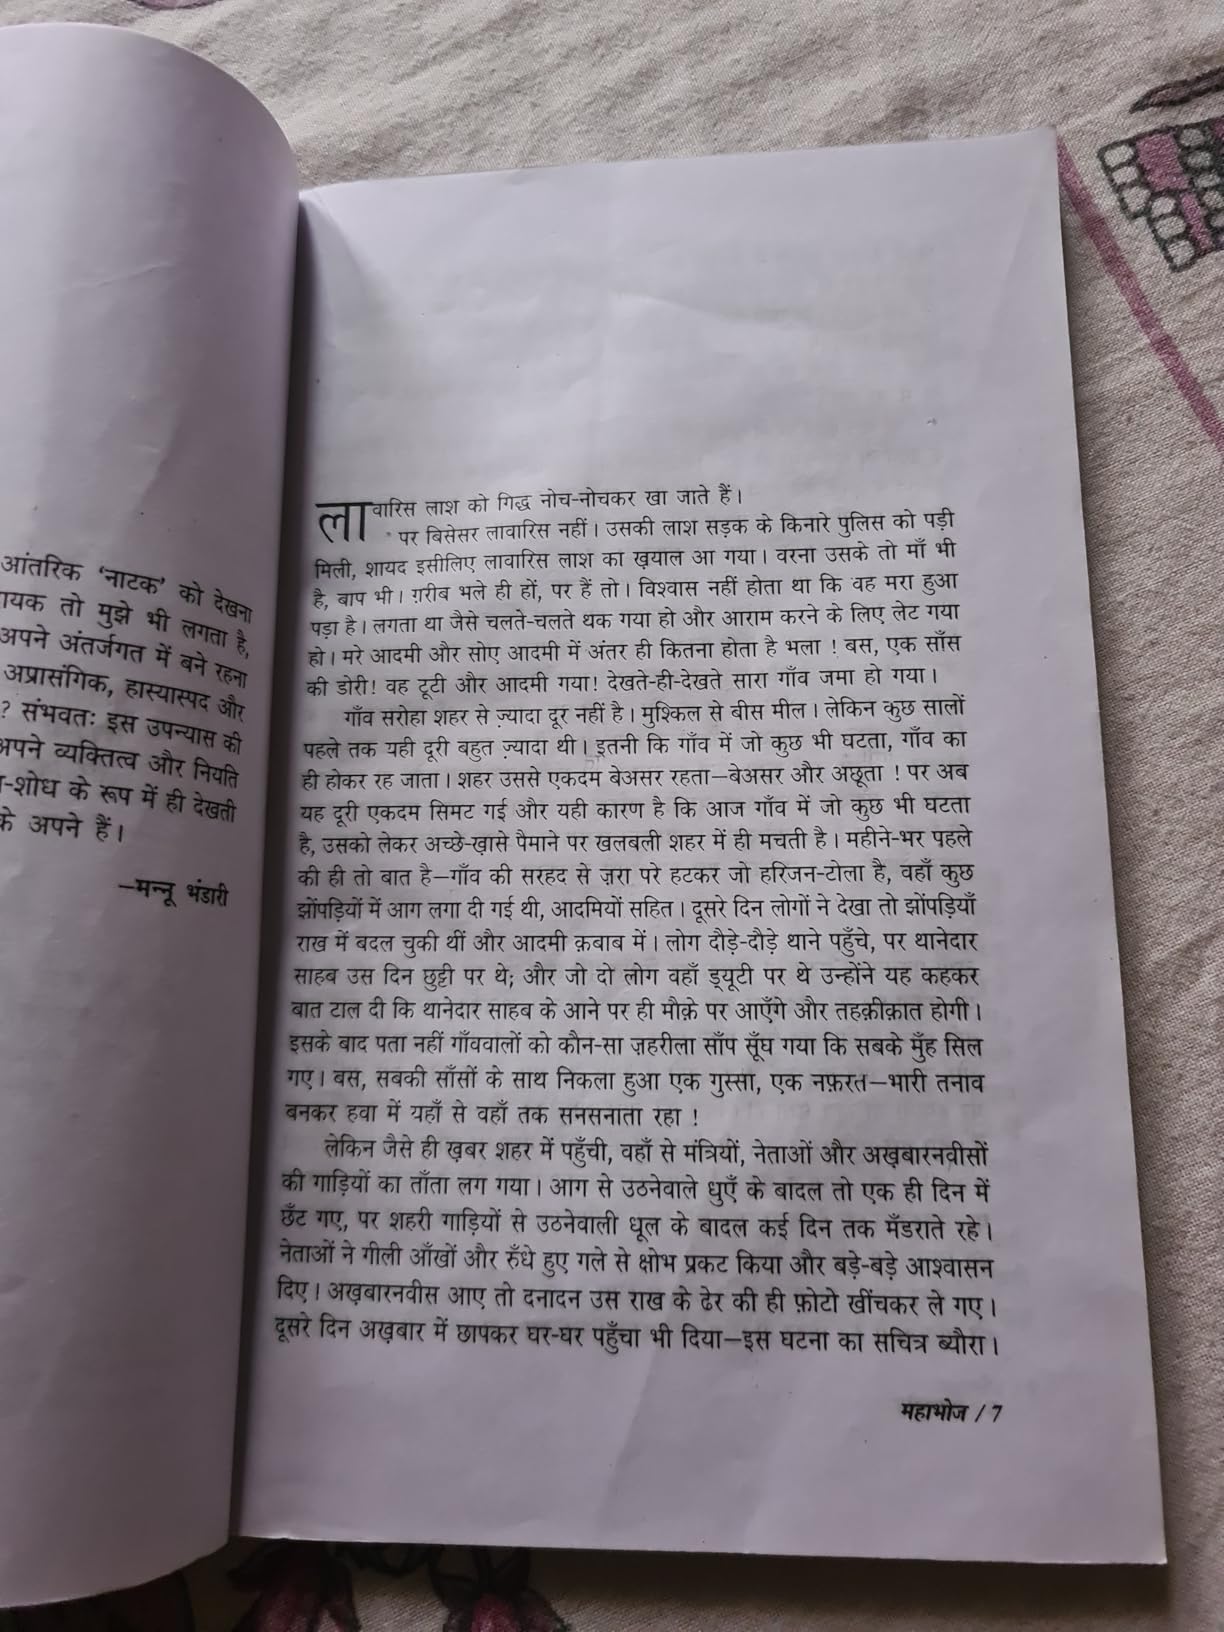 आंतरिक ‘नाटक’ को देखना
तो मुझे भी लगता है,
अपने अंतर्जगत में बने रहना
अप्रासंगिक, हास्यास्पद और
? संभवतः इस उपन्यास की
अपने व्यक्तित्व और नियति
-शोध के रूप में ही देखती
के अपने हैं।
—मन्नू भंडारी
लावारिस लाश को गिद्ध नोच-नोचकर खा जाते हैं।
पर बिसेसर लावारिस नहीं। उसकी लाश सड़क के किनारे पुलिस को पड़ी
मिली, शायद इसीलिए लावारिस लाश का ख़याल आ गया। वरना उसके तो माँ भी
है, बाप भी। ग़रीब भले ही हों, पर हैं तो। विश्वास नहीं होता था कि वह मरा हुआ
पड़ा है। लगता था जैसे चलते-चलते थक गया हो और आराम करने के लिए लेट गया
हो। मरे आदमी और सोए आदमी में अंतर ही कितना होता है भला ! बस, एक साँस
की डोरी! वह टूटी और आदमी गया! देखते-ही-देखते सारा गाँव जमा हो गया।
गाँव सरोहा शहर से ज़्यादा दूर नहीं है। मुश्किल से बीस मील। लेकिन कुछ सालों
पहले तक यही दूरी बहुत ज़्यादा थी। इतनी कि गाँव में जो कुछ भी घटता, गाँव का
ही होकर रह जाता। शहर उससे एकदम बेअसर रहता—बेअसर और अछूता ! पर अब
यह दूरी एकदम सिमट गई और यही कारण है कि आज गाँव में जो कुछ भी घटता
है, उसको लेकर अच्छे-ख़ासे पैमाने पर खलबली शहर में ही मचती है। महीने-भर पहले
की ही तो बात है—गाँव की सरहद से ज़रा परे हटकर जो हरिजन-टोला है, वहाँ कुछ
झोंपड़ियों में आग लगा दी गई थी, आदमियों सहित। दूसरे दिन लोगों ने देखा तो झोंपड़ियाँ
राख में बदल चुकी थीं और आदमी क़बाब में। लोग दौड़े-दौड़े थाने पहुँचे, पर थानेदार
साहब उस दिन छुट्टी पर थे; और जो दो लोग वहाँ ड्यूटी पर थे उन्होंने यह कहकर
बात टाल दी कि थानेदार साहब के आने पर ही मौक़े पर आएँगे और तहक़ीक़ात होगी।
इसके बाद पता नहीं गाँववालों को कौन-सा ज़हरीला साँप सूँघ गया कि सबके मुँह सिल
गए। बस, सबकी साँसों के साथ निकला हुआ एक गुस्सा, एक नफ़रत—भारी तनाव
बनकर हवा में यहाँ से वहाँ तक सनसनाता रहा !
लेकिन जैसे ही ख़बर शहर में पहुँची, वहाँ से मंत्रियों, नेताओं और अख़बारनवीसों
की गाड़ियों का ताँता लग गया। आग से उठनेवाले धुएँ के बादल तो एक ही दिन में
छँट गए, पर शहरी गाड़ियों से उठनेवाली धूल के बादल कई दिन तक मँडराते रहे।
नेताओं ने गीली आँखों और रुँधे हुए गले से क्षोभ प्रकट किया और बड़े-बड़े आश्वासन
दिए। अख़बारनवीस आए तो दनादन उस राख के ढेर की ही फ़ोटो खींचकर ले गए।
दूसरे दिन अख़बार में छापकर घर-घर पहुँचा भी दिया—इस घटना का सचित्र ब्यौरा।
महाभोज / 7